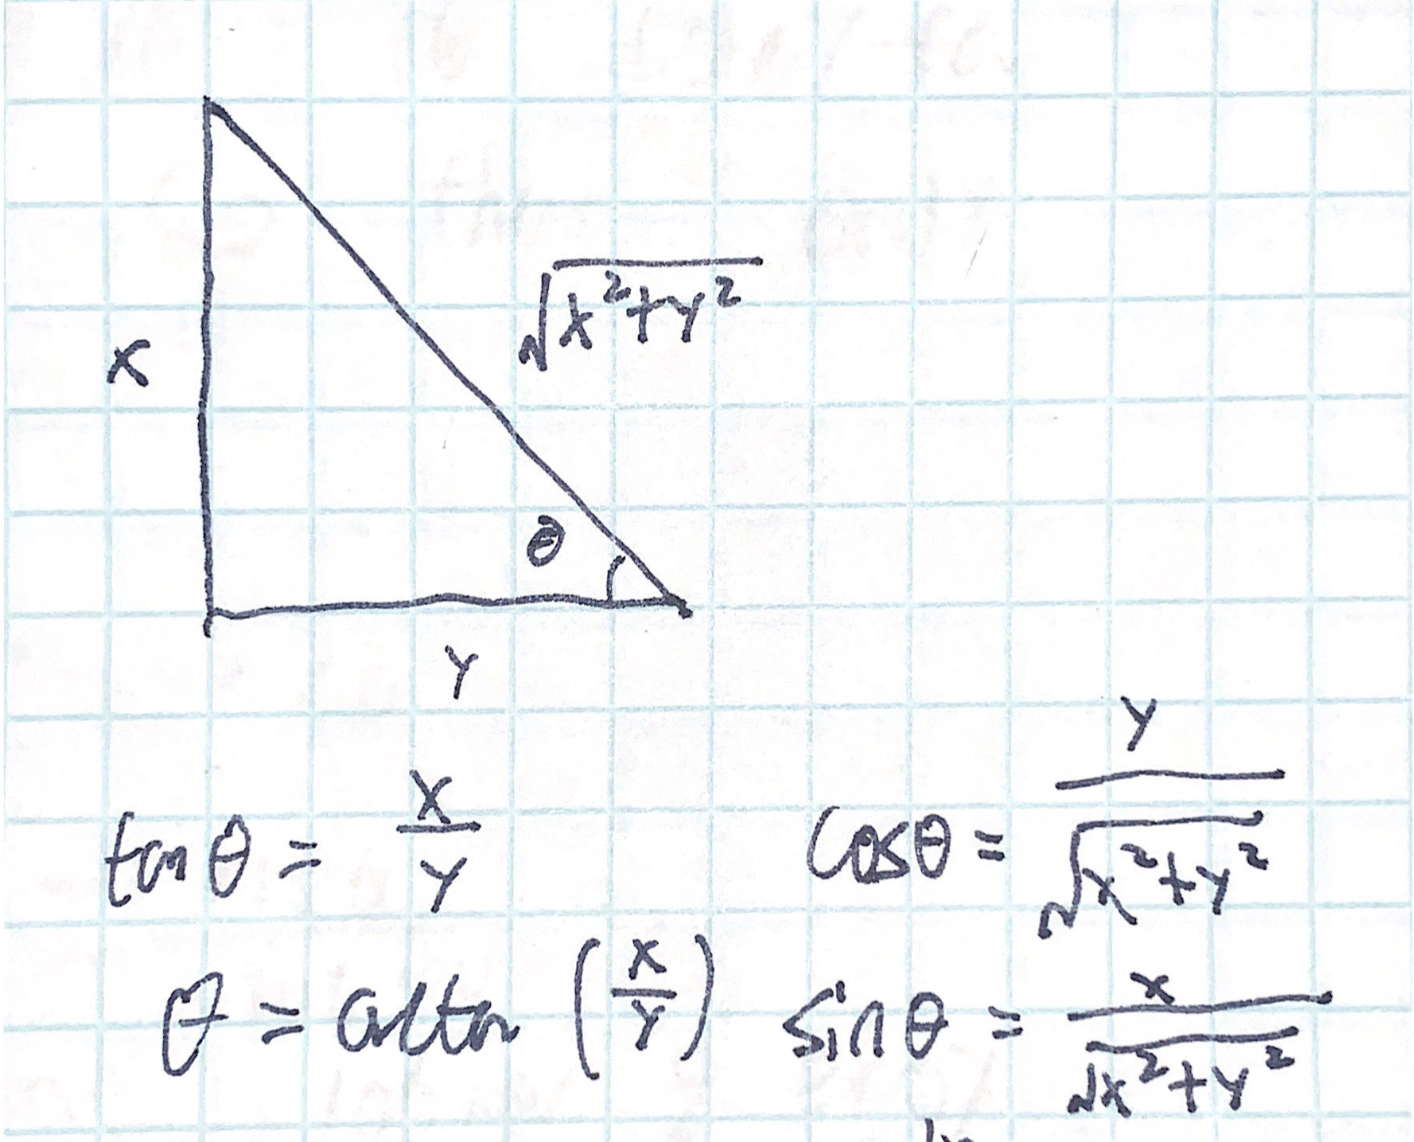 √(x²+y²)
x
θ
y
tanθ = x/y
cosθ = y/√(x²+y²)
θ = arctan (x/y)
sinθ = x/√(x²+y²)